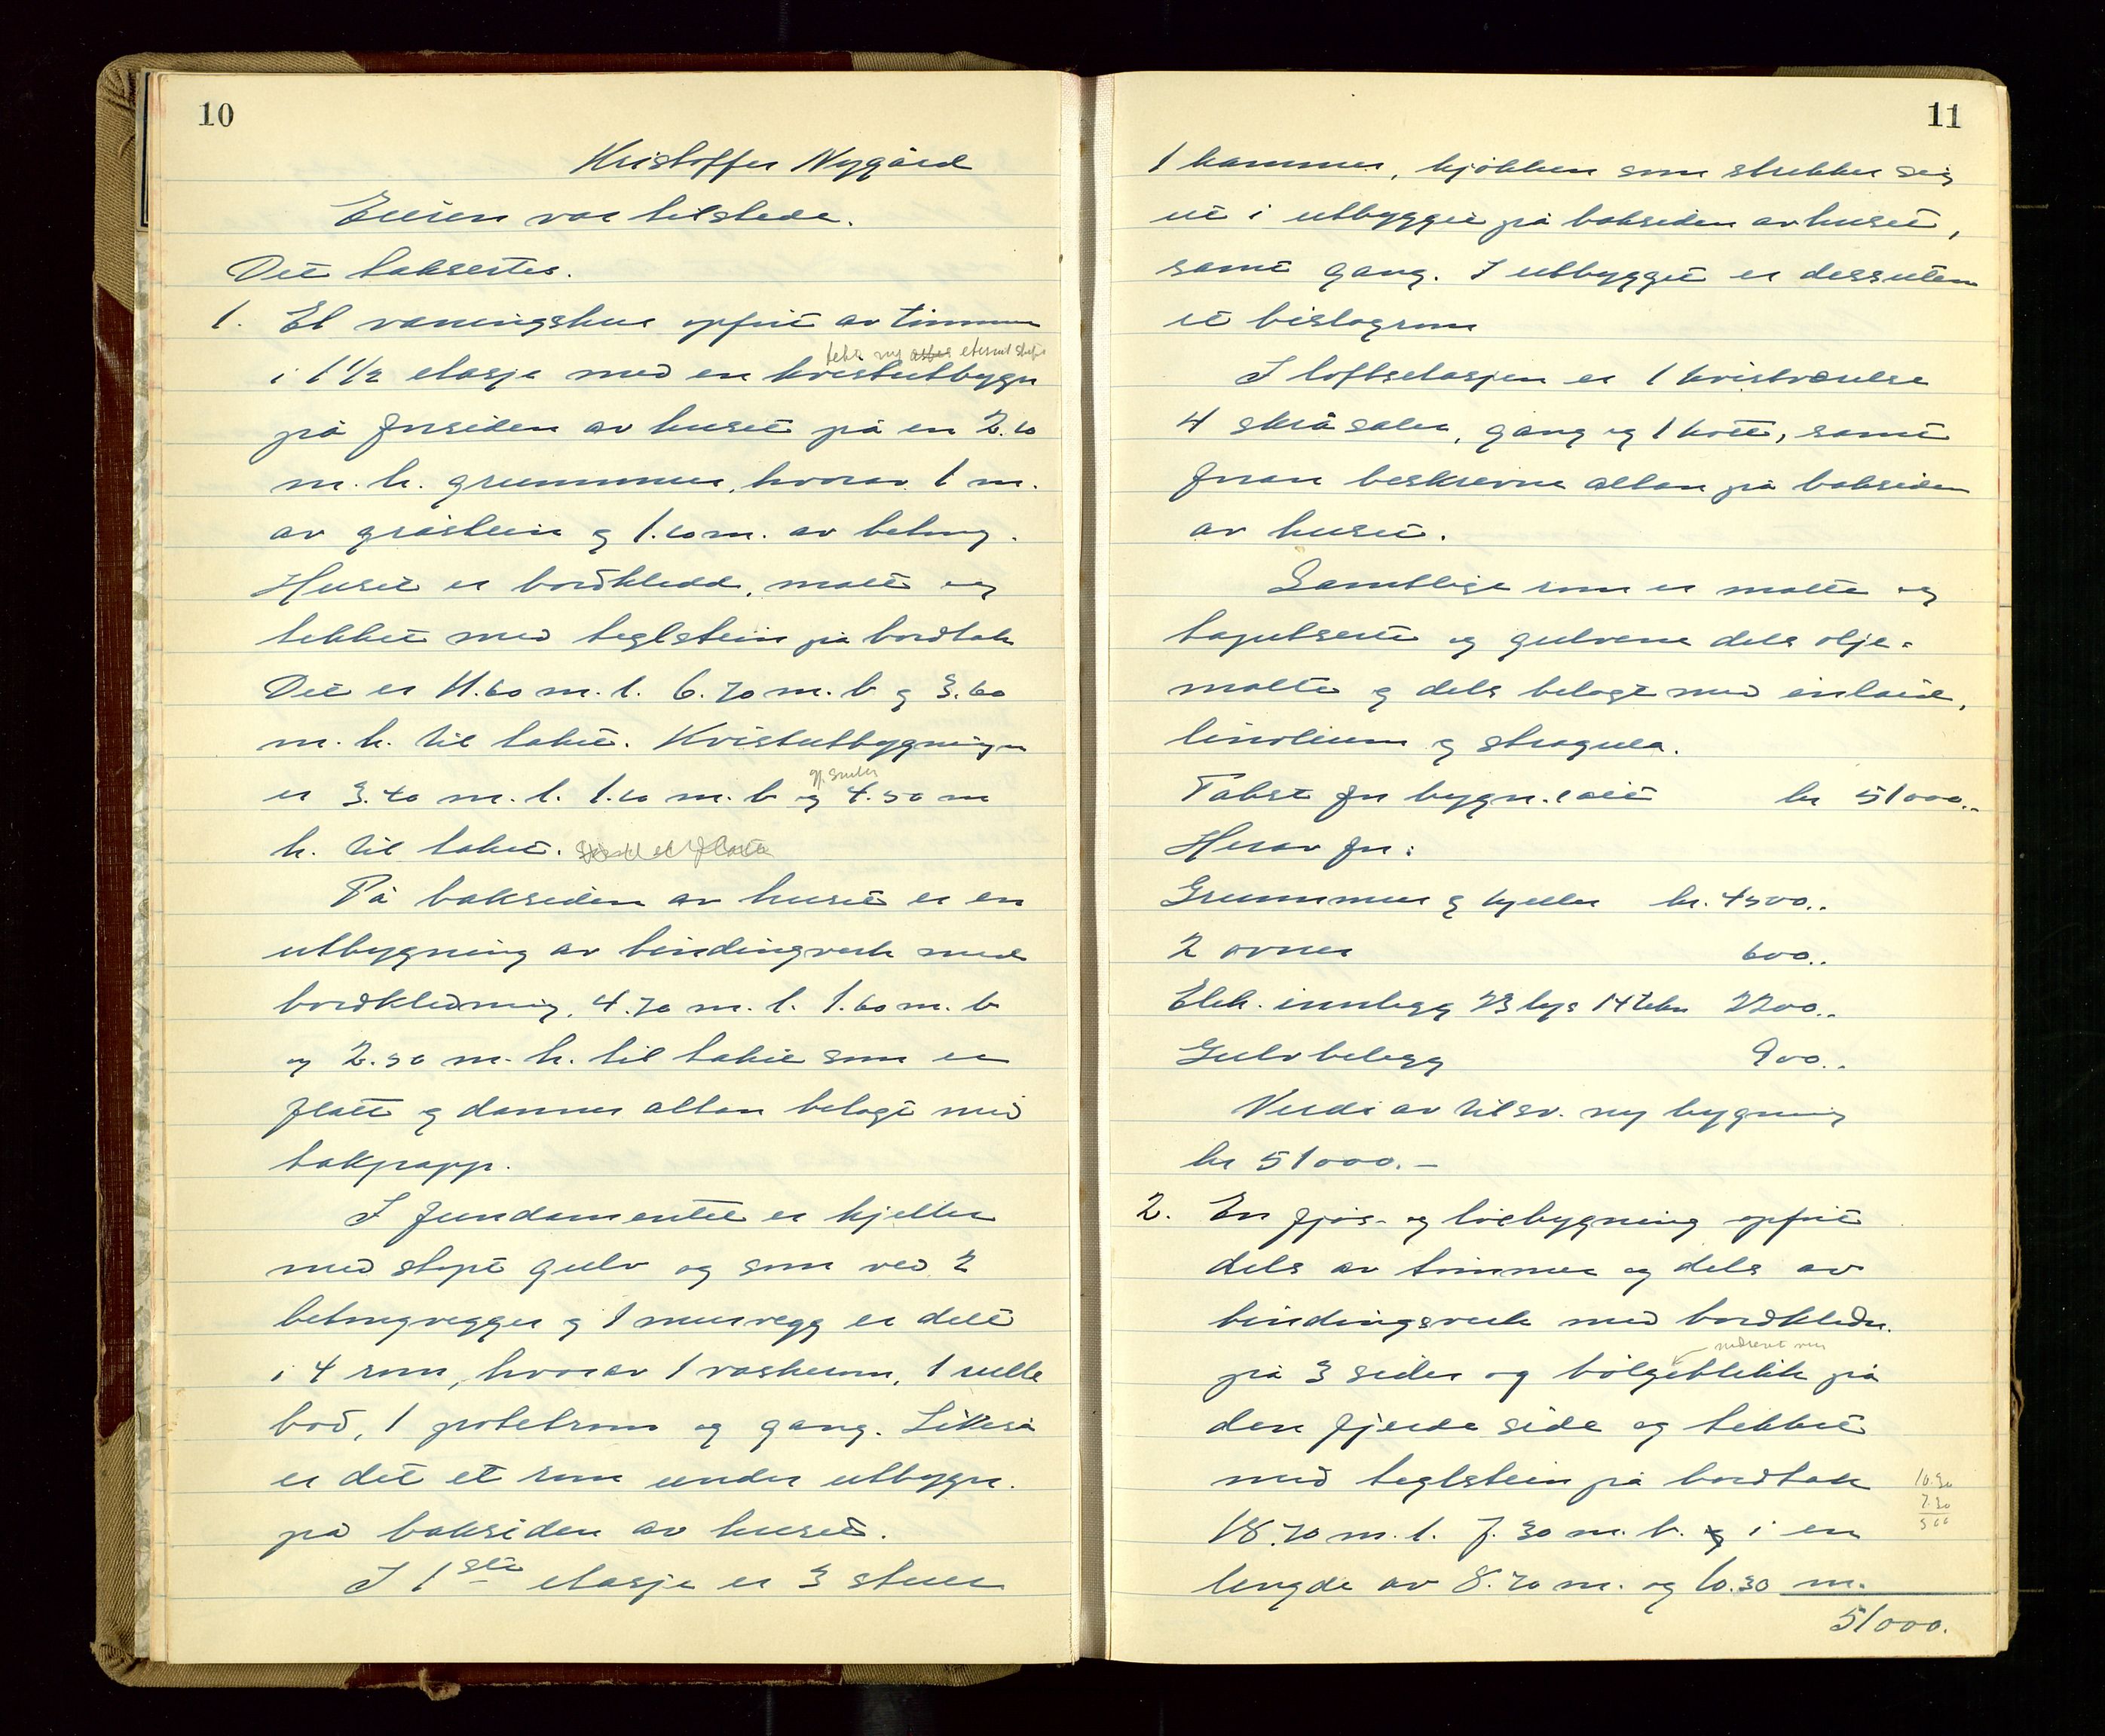 10
Kristoffer Nygård
Eieren var tilstede.
Det taksertes.
1. Et vaningshus opført av tømmer
eternit
i 1 1/2 etasje med en kvistutbygn
på forsiden av huset på en 2.10
m. h. grunnmur, hvorav 1 m.
av gråstein og 1.10 m. av betong.
Huset er bordkledd, malt og
tekket med teglstein på bordtak
Det er 11.60 m. l. 6.70 m. b og 3.60
m. h. til taket. Kvistutbygningen
gj.snitl
er 3.40 m. l. 1.10 m. b og 4.50 m
h. til taket.
På baksiden av huset er en
utbygning av bindingverk med
bordkledning, 4.70 m. l. 1.60 m. b
og 2.50 m. h. til taket som er
flatt og danner altan belagt med
takpapp.
I fundamentet er kjeller
med støpt gulv og som ved 2
betongvegger og 1 murvegg er delt
i 4 rom, hvorav 1 vaskerom, 1 rulle
bod, 1 potetrom og gang. Likeså
er det et rom under utbygn.
på baksiden av huset.
I 1ste etasje er 3 stuer
11
1 kammer, kjøkken som strekker seg
ut i utbygget på baksiden av huset,
samt gang. I utbygget er dessuten
et bislagrom
I loftsetasjen er 1 kvistværelse
4 skråsaler, gang og 1 kott, samt
foran beskrevne altan på baksiden
av huset.
Samtlige rom er malte og
tapetserte og gulvene dels olje-
malte og dels belagt med inlaid,
linoleum og stragula.
Takst for bygn. i alt kr 51000.-
Herav for:
Grunnmur og kjeller kr. 4500.-
2 ovner 600.-
Elek. innlegg 23 lys 14 stikk 2200.-
Gulvbelegg 900.-
Verdi av tilsv. ny bygning
kr 51000.-
2. En fjøs- og løebygning opført
dels av tømmer og dels av
bindingsverk med bordkledn.
på 3 sider og bølgeblikk på
den fjerde side og tekket
med teglstein på bordtak
10.30
7.30
18.70 m. l. 7.30 m. b. og i en
lengde av 8.70 m. og 10.30 m.
51000.